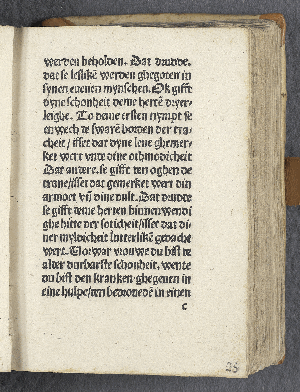 werden beholden. Dat drudde.
dat se lesliken werden ghegoten in
synen euenen mynschen. Ok gifft
dyne schonheit deme hertē dryer
leighe. To deme ersten nympt se
en wech de swarē borden der tra-
cheit / isset dar dyne leue ghemer-
ket wert vnde dine othmodicheit
Dat andere. se gifft den oghen de
trane / isset dat gemerket wert din
armoet vn̄ dine dult. Dat drudde
se gifft deme herten binnen wendi
ghe hitte der soticheit / isset dat di-
ner myldicheit lutterlikē gedacht
wert. Vorwar vrouwe du bist de
alder durbarste schonheit, wente
du bist den kranken ghegeuen in
eine hulpe / den bedroueden in einen
c
25